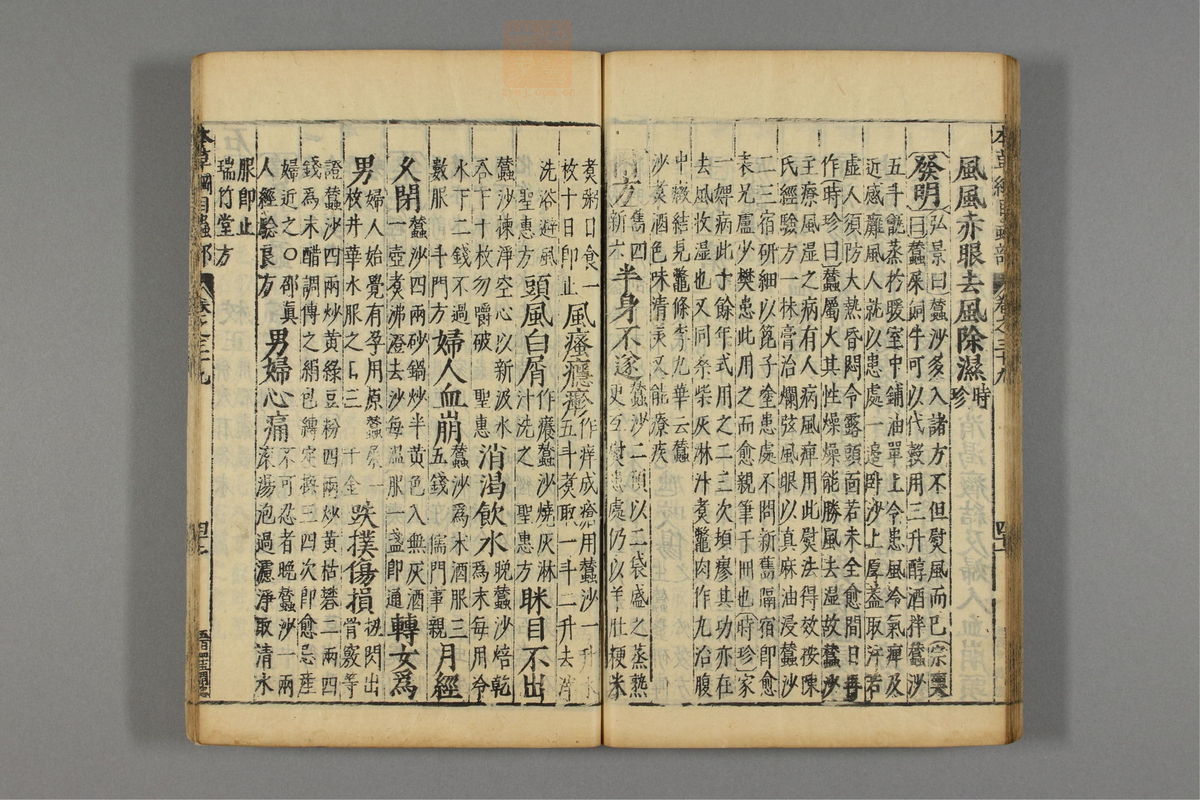 風風赤眼去風除濕時珍
發明弘景曰蠶沙多入諸方不但熨風而已宗奭
曰蠶屎飼牛可以代穀用三升醇酒拌蠶沙
五斗甑蒸於暖室中鋪油單上令患風冷氣痺及
近感癱風人就以患處一邊臥沙上厚蓋取汗若
虛人須防大熱昏悶令露頭面若未全愈間日再
作時珍曰蠶屬火其性燥燥能勝風去濕故蠶沙
主療風濕之病有人病風痺用此熨法得效按陳
氏經驗方一抹膏治爛弦風眼以真麻油浸蠶沙
二三宿研細以篦子塗患處不問新舊隔宿即愈
表兄盧少樊患此用之而愈親筆于冊也時珍家
一婢病此十餘年試用之二三次頓瘳其功亦在
去風收濕也又同桑柴灰淋汁煮鱉肉作丸治腹
中癥結見鱉條李九華云蠶
沙煮酒色味清美又能療疾
附方舊四新六半身不遂蠶沙二碩以二袋盛之蒸熱
更互熨患處仍以羊肚粳米
煮粥日食一
枚十日即止風瘙癮疹作痒成瘡用蠶沙一升水
五斗煮取一斗二升去滓
洗浴避風
聖惠方頭風白屑作癢蠶沙燒灰淋
汁洗之聖惠方眯目不出
蠶沙揀淨空心以新汲水
吞下十枚勿嚼破聖惠消渴飲水晚蠶沙焙乾
為末每用冷
水下二錢不過
數服斗門方婦人血崩蠶沙為末酒服三
五錢儒門事親月經
久閉蠶沙四兩砂鍋炒半黃色入無灰酒
一壺煮沸澄去沙每溫服一盞即通轉女為
男婦人始覺有孕用原蠶屎一
枚井華水服之日三千金跌撲傷損扭閃出
骨竅等
證蠶沙四兩炒黃綠豆粉四兩炒黃枯礬二兩四
錢為末醋調傅之絹包縛定換三四次即愈忌產
婦近之〇邵真
人經驗良方男婦心痛不可忍者晚蠶沙一兩
滾湯泡過濾淨取清水
服即止
瑞竹堂方
本草綱目蟲部
卷之三十九